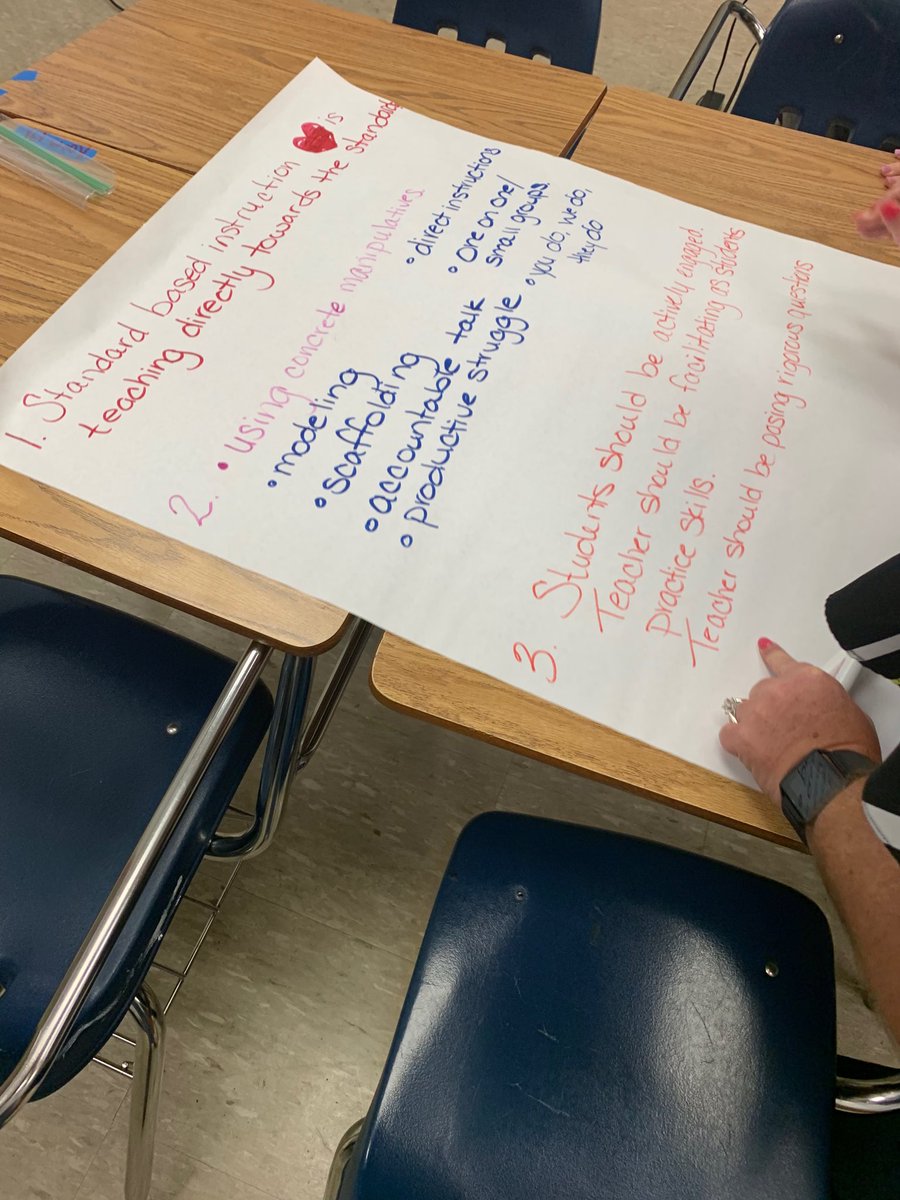 1. Standard based instruction is
teaching directly towards the standard
2. • using concrete manipulatives.
• modeling
• scaffolding
• accountable talk
• productive struggle
• direct instructions
• one on one/
small groups.
• you do, we do,
they do
3. Students should be actively engaged.
Teacher should be facilitating as students
practice skills.
Teacher should be posing rigorous questions